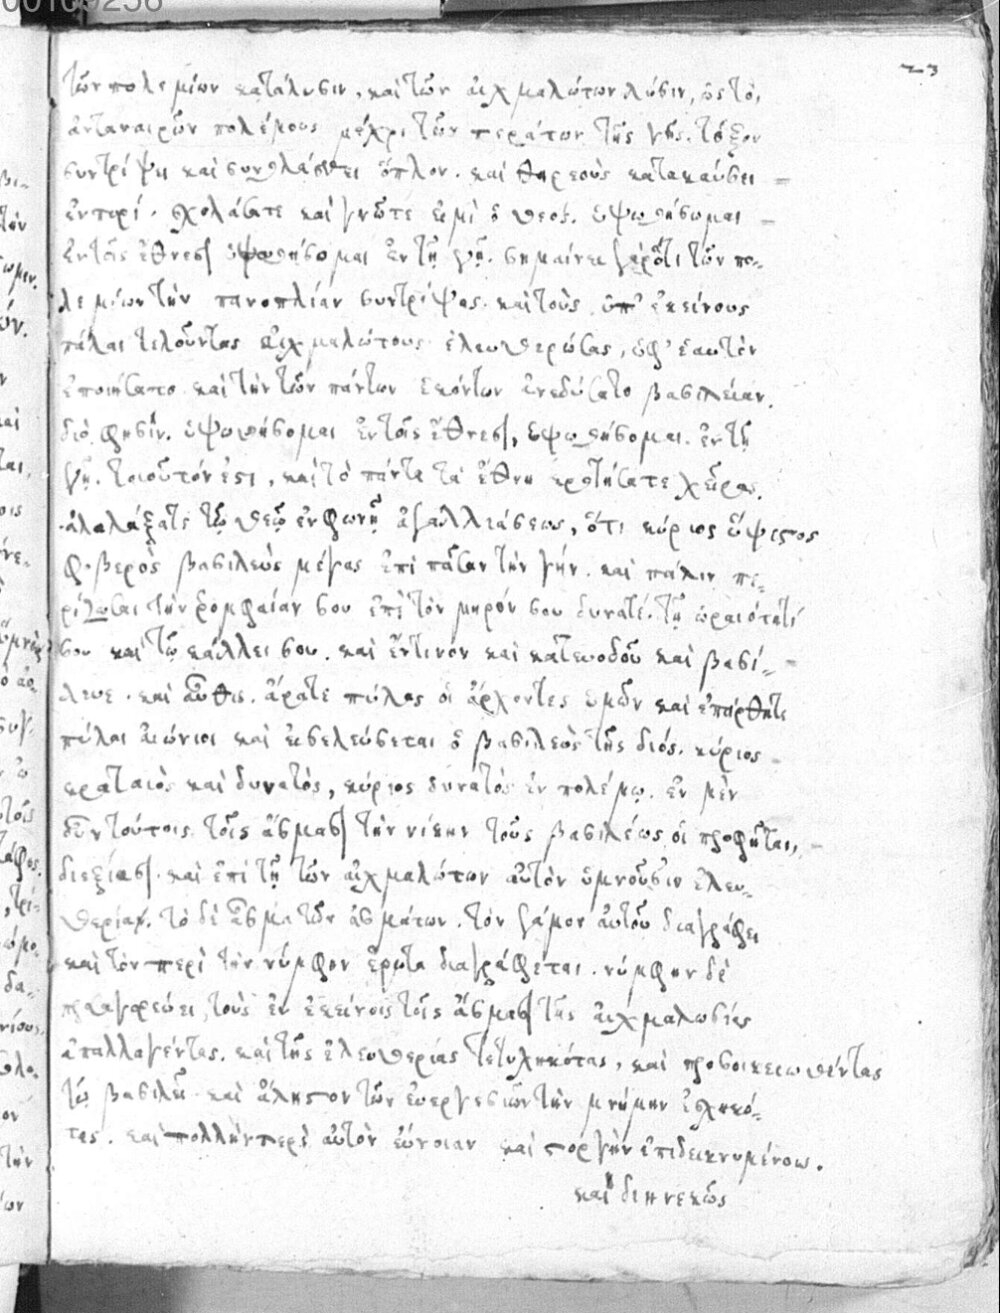 23
τῶν πολεμίων κατάλυσιν, καὶ τῶν αἰχμαλώτων λύσιν, ὡς τὸ,
ἀνταναιρῶν πολέμους μέχρι τῶν περάτων τῆς γῆς. τόξον
συντρίψει καὶ συνθλάσει ὅπλον. καὶ θυρεοὺς κατακαύσει
ἐν πυρί. σχολάσατε καὶ γνῶτε εἰμὶ ὁ θεός. ὑψωθήσομαι
ἐν τοῖς ἔθνεσι ὑψωθήσομαι ἐν τῇ γῇ. σημαίνει γὰρ ὅτι τῶν πο-
λεμίων τὴν πανοπλίαν συντρίψας. καὶ τοὺς ὑπ' ἐκείνους
πάλαι τελοῦντας αἰχμαλώτους ἐλευθερώσας, ὑφ' ἑαυτὸν
ἐποιήσατο καὶ τὴν τῶν πάντων ἑκόντων ἀνεδύσατο βασιλείαν.
διό φησιν. ὑψωθήσομαι ἐν τοῖς ἔθνεσι, ὑψωθήσομαι ἐν τῇ
γῇ. τοιοῦτόν ἐστι, καὶ τὸ πάντα τὰ ἔθνη κροτήσατε χεῖρας.
ἀλαλάξατε τῷ θεῷ ἐν φωνῇ ἀγαλλιάσεως, ὅτι κύριος ὕψιστος
φοβερὸς βασιλεὺς μέγας ἐπὶ πᾶσαν τὴν γῆν. καὶ πάλιν πε-
ρίζωσαι τὴν ῥομφαίαν σου ἐπὶ τὸν μηρόν σου δυνατέ. τῇ ὡραιότητί
σου καὶ τῷ κάλλει σου. καὶ ἔντεινον καὶ κατευοδοῦ καὶ βασί-
λευε. καὶ αὖθις. ἄρατε πύλας οἱ ἄρχοντες ὑμῶν καὶ ἐπάρθητε
πύλαι αἰώνιοι καὶ εἰσελεύσεται ὁ βασιλεὺς τῆς δόξης. κύριος
κραταιὸς καὶ δυνατός, κύριος δυνατὸς ἐν πολέμῳ. ἐν μὲν
δὴ τούτοις τοῖς ἄσμασι τὴν νίκην τοῦ βασιλέως οἱ προφῆται,
διεξίασι. καὶ ἐπὶ τῇ τῶν αἰχμαλώτων αὐτὸν ὑμνοῦσιν ἐλευ-
θερίᾳ. τὸ δὲ ἆσμα τῶν ἀσμάτων. τὸν γάμον αὐτοῦ διαγράφει
καὶ τὸν περὶ τὴν νύμφην ἔρωτα διαγράφεται. νύμφην δὲ
προσαγορεύει, τοὺς ἐν ἐκείνοις τοῖς ἄσμασι τῆς αἰχμαλωσίας
ἀπαλλαγέντας. καὶ τῆς ἐλευθερίας τετυχηκότας, καὶ προσοικειωθέντας
τῷ βασιλεῖ καὶ ἄληστον τῶν εὐεργεσιῶν τὴν μνήμην ἐσχηκό-
τας. καὶ πολλὴν περὶ αὐτὸν εὔνοιαν καὶ στοργὴν ἐπιδεικνυμένους.
καὶ διηνεκῶς